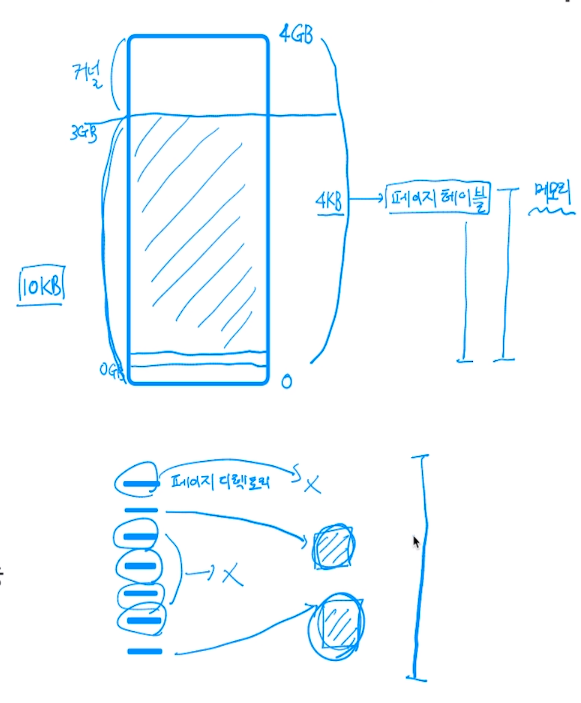 4GB
커널
3GB
4KB
페이지 테이블
메모리
10KB
0GB
0
페이지 디렉토리
X
X